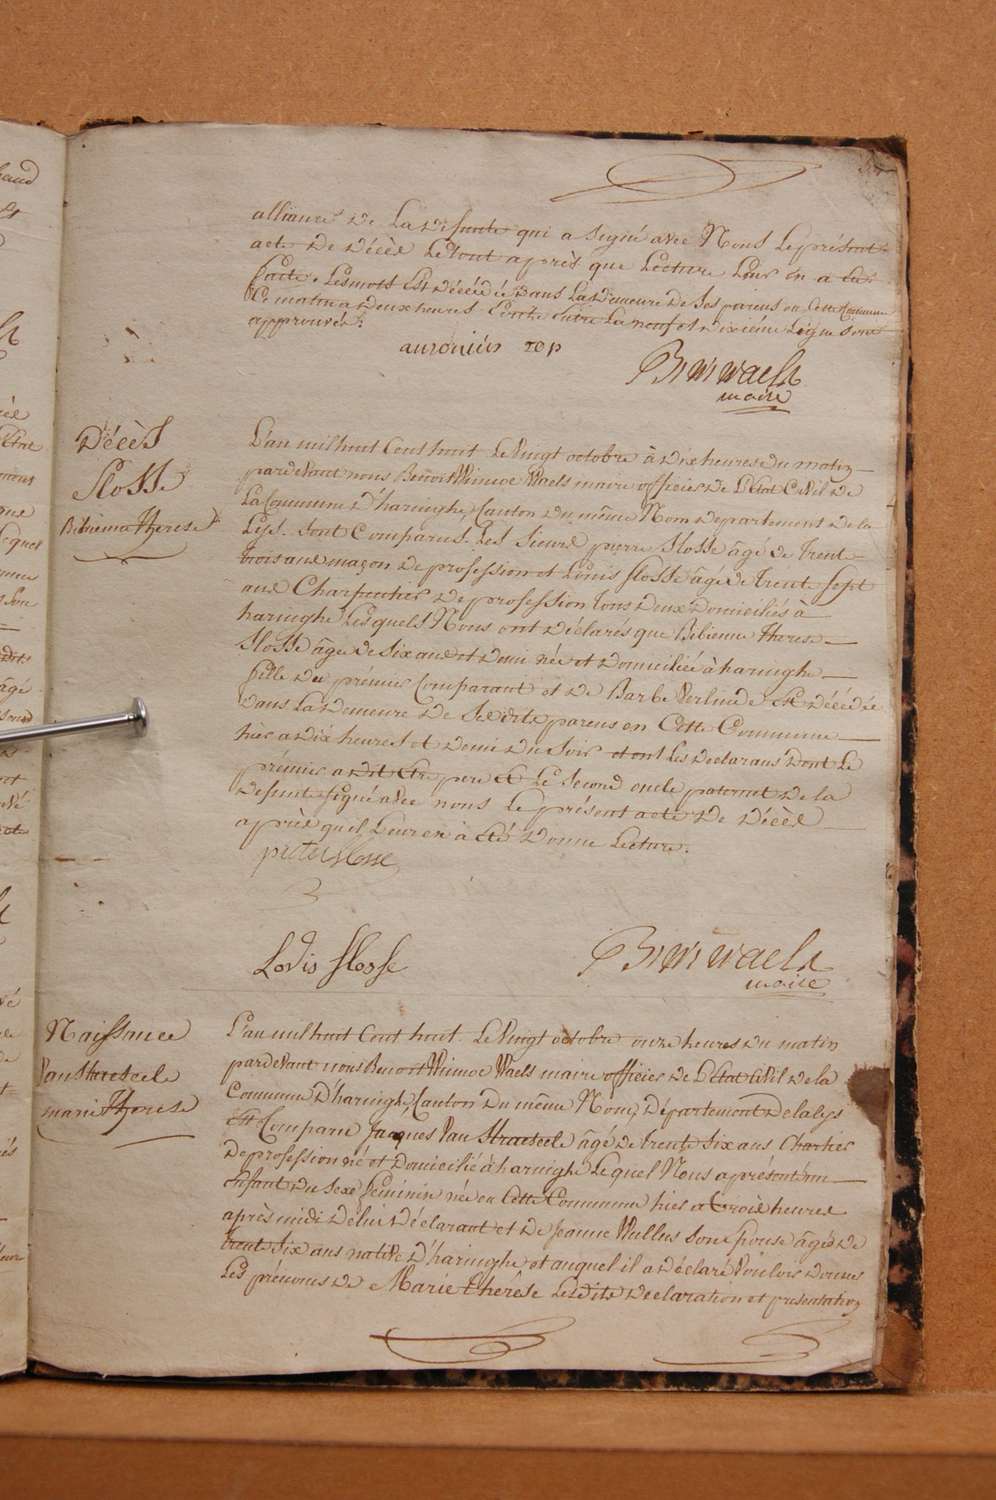 alliance de La defunte qui a Signé avec Nous Le présent
acte de décèd Le tout après que Lecture Leur en a Eté
faite. Les mots Est décédée dans La demeure de Ses parens en Cette Commune
Ce matin a deux heures Ecrits Entre La neuf et dixième Ligne sont
approuvés.
auronius top
B W Waels
maire
Décès
Slosse
Bibienne Therese
L'an mil huit Cent huit Le Vingt octobre à Dix heures du matin
pardevant nous Benoit Winnoc Waels maire officier de L'état Civil de
La Commune D'haringhe, Canton du même Nom Departement de la
Lys. Sont Comparus Les Sieurs pierre Slosse âgé de trent
trois ans maçon de profession et Louis Slosse âgé de trente Sept
ans Charpentier de profession tous deux domiciliés à
haringhe Lesquels Nous ont déclarés que Bibienne Therese
Slosse âgée de Six ans et demi née et domiciliée à haringhe
fille du prémier Comparant et de Barbe Verlinde Est décédée
dans La demeure de Sesdits parens en Cette Commune
hier a dix heures et demi du Soir et ont Les declarans dont Le
prémier a dit Etre pere et Le Second oncle paternel de la
defunte Signé avec nous Le présent acte de décèd
après qu'il Leur en à été donné Lecture.
pieter slosse
Lovis slosse
B W Waels
maire
Naissance
Van Straeseele
marie Therese
L'an mil huit Cent huit Le Vingt octobre onze heures du matin
pardevant nous Benoit Winnoc Waels maire officier de L'état Civil de la
Commune D'haringhe, Canton du même Nom, Département de la lys
Est Comparu Jacques Van Straeseele âgé de trente Six ans Chartier
de profession né et domicilié à haringhe Lequel Nous a présenté un
enfant du Sexe feminin née en Cette Commune hier a trois heures
après midi de lui déclarant et de Jeanne Wullus Son epouse âgée de
trente Six ans native D'haringhe et auquel il a déclaré Vouloir donner
Les prénoms de Marie Thérèse Lesdits declaration et présentation